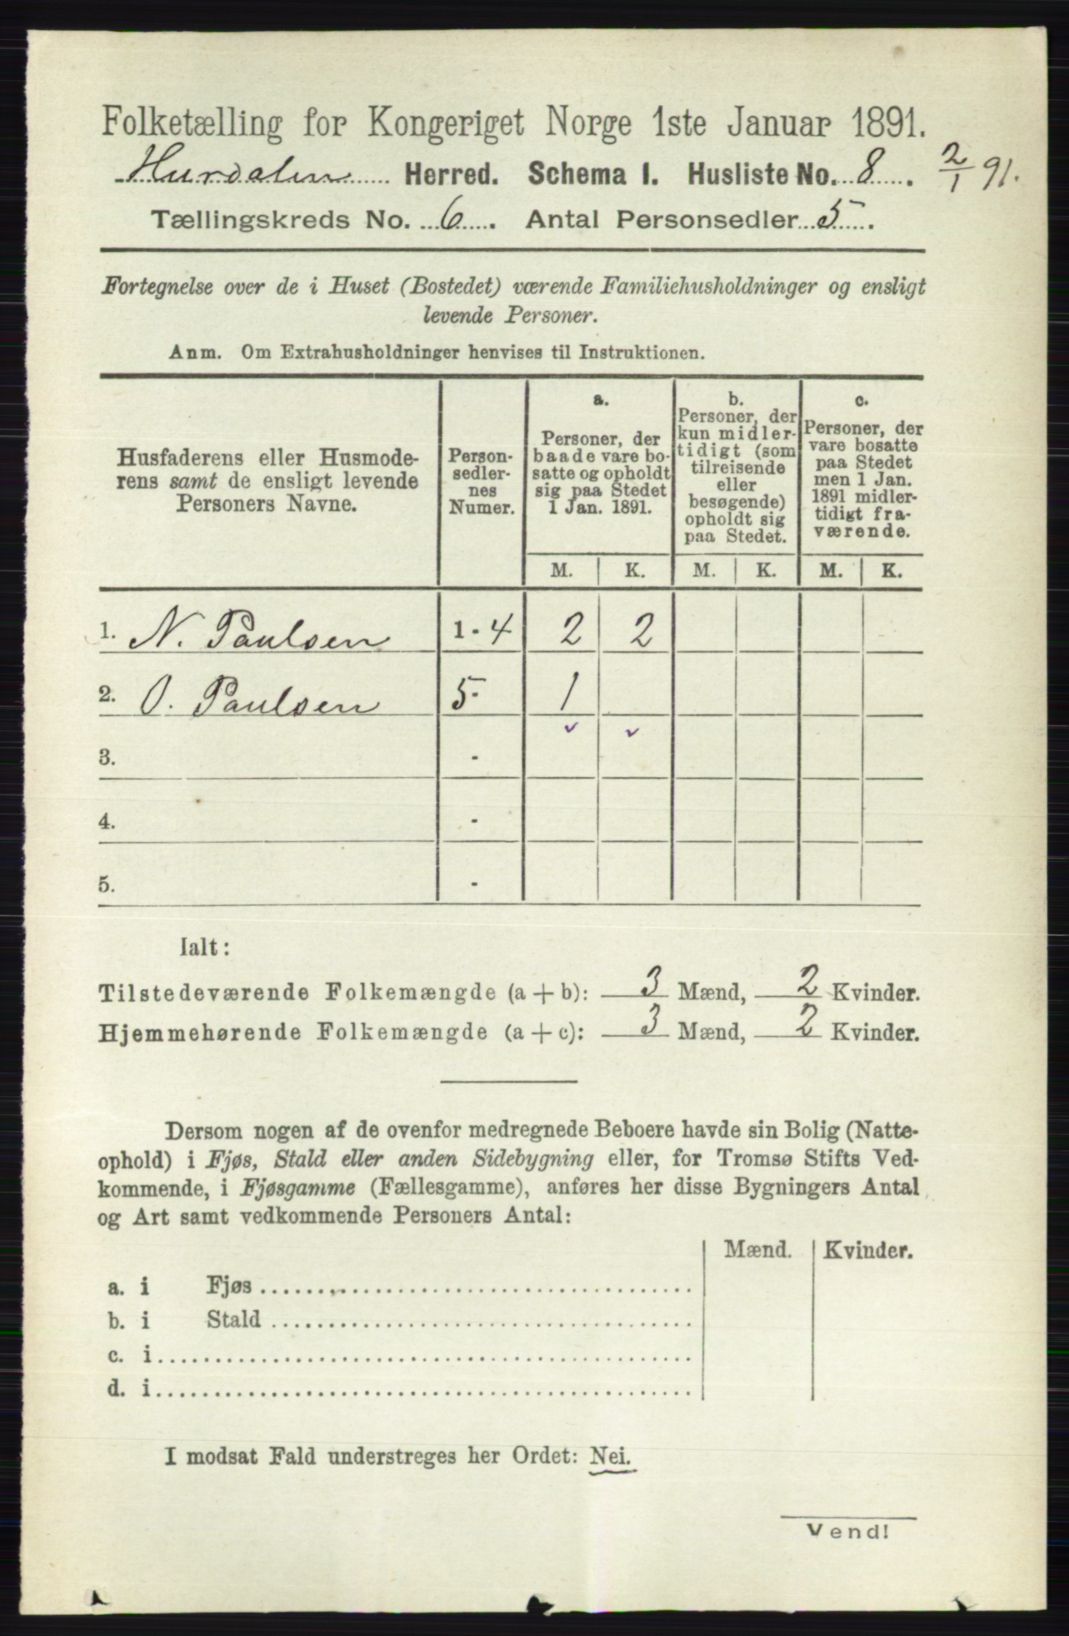 Folketælling for Kongeriget Norge 1ste Januar 1891.
Hurdalen Herred. Schema I. Husliste No. 8. 2/1 91.
Tællingskreds No. 6. Antal Personsedler 5.
Fortegnelse over de i Huset (Bostedet) værende Familiehusholdninger og ensligt
levende Personer.
Anm. Om Extrahusholdninger henvises til Instruktionen.
Husfaderens eller Husmode-
rens samt de ensligt levende
Personers Navne.
Person-
sedler-
nes
Numer.
a.
Personer, der
baade vare bo-
satte og opholdt
sig paa Stedet
1 Jan. 1891.
b.
Personer, der
kun midler-
tidigt (som
tilreisende
eller
besøgende)
opholdt sig
paa Stedet.
c.
Personer, der
vare bosatte
paa Stedet
men 1 Jan.
1891 midler-
tidigt fra-
værende.
M. K. M. K. M. K.
1. N. Paulsen 1 - 4 2 2
2. O. Paulsen 5 - 1
3. -
4. -
5. -
Ialt:
Tilstedeværende Folkemængde (a + b): 3 Mænd, 2 Kvinder.
Hjemmehørende Folkemængde (a + c): 3 Mænd, 2 Kvinder.
Dersom nogen af de ovenfor medregnede Beboere havde sin Bolig (Natte-
ophold) i Fjøs, Stald eller anden Sidebygning eller, for Tromsø Stifts Ved-
kommende, i Fjøsgamme (Fællesgamme), anføres her disse Bygningers Antal
og Art samt vedkommende Personers Antal:
Mænd. Kvinder.
a. i Fjøs
b. i Stald
c. i
d. i
I modsat Fald understreges her Ordet: Nei.
Vend!